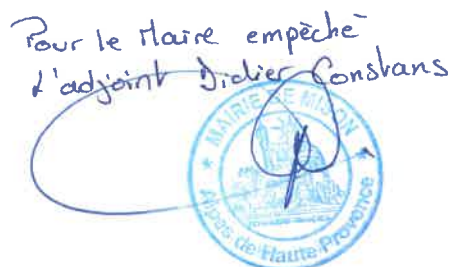 Pour le Maire empêché
L'adjoint Didier Constans
MAIRIE DE MISON
Alpes de Haute-Provence